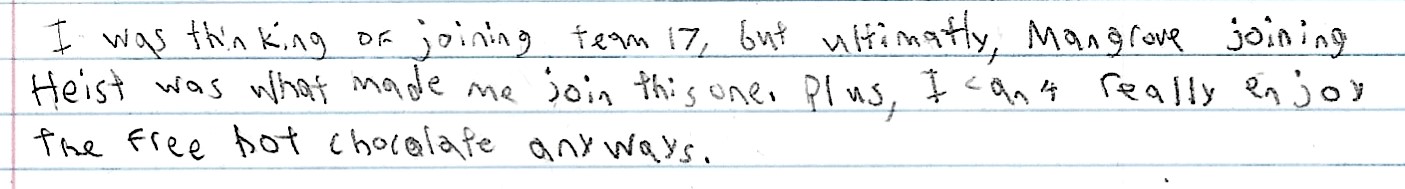 I was thinking of joining team 17, but ultimatly, Mangrove joining
Heist was what made me join this one. Plus, I can't really enjoy
the free hot chocolate anyways.